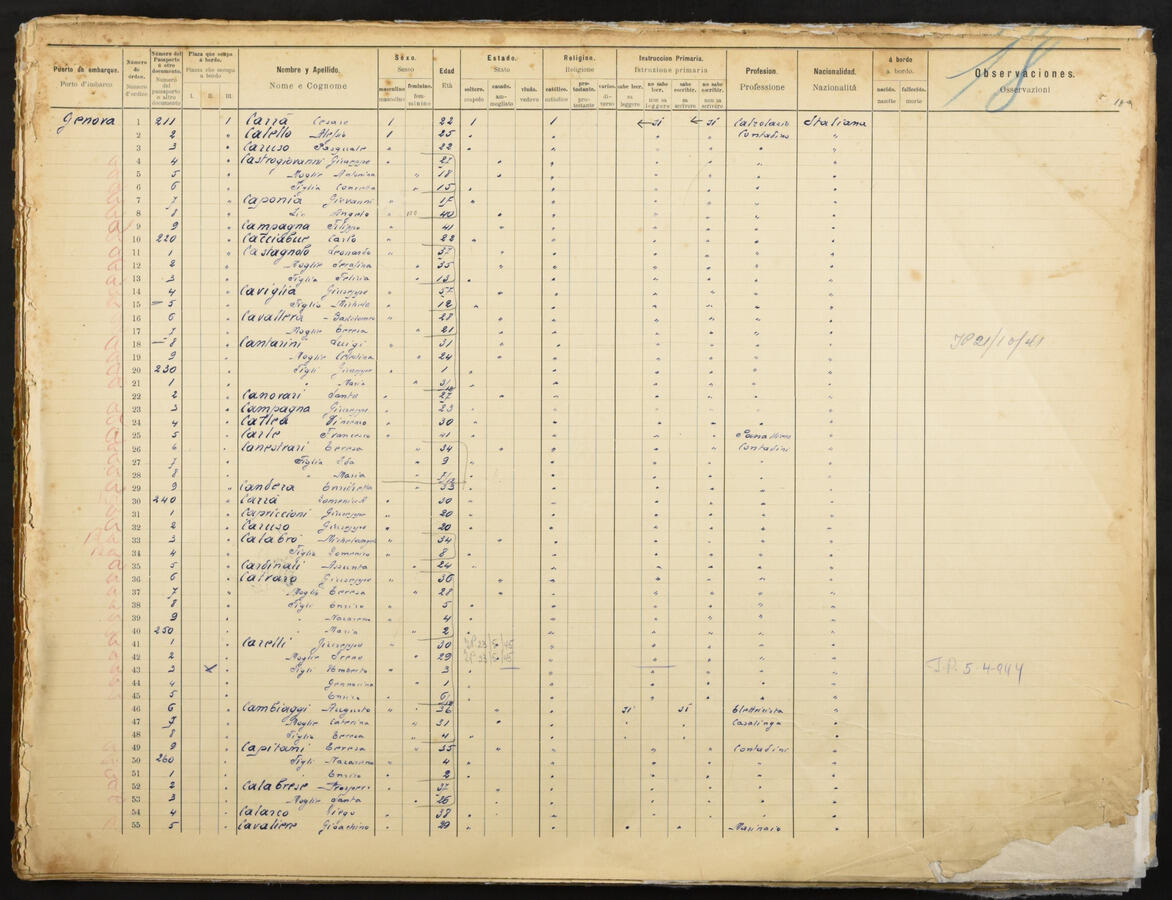 18
Puerto de embarque. Porto d'imbarco
Número de órden. Numero d'ordine
Número del Pasaporte ú otro documento. Numero del passaporto o altro documento
Plaza que ocupa á bordo. Piazza che occupa a bordo I. II. III.
Nombre y Apellido. Nome e Cognome
Sexo. Sesso masculino maschile femenino femminino
Edad Età
Estado. Stato soltero. casado. ammogliato viudo. vedovo
Religion. Religione católico. cattolico protestante protestante varios. diverso
Instruccion Primaria. Istruzione primaria sabe leer. sa leggere no sabe leer. non sa leggere sabe escribir. sa scrivere no sabe escribir. non sa scrivere
Profesion. Professione
Nacionalidad. Nazionalità
á bordo a bordo. nacido. nascite fallecido. morte
Observaciones. Osservazioni
Genova 1 211 1 Carrà Cesare 1 22 1 1 si si Calzolaio Italiana
2 2 " Calello 1 25 " Contadino "
3 3 " Caruso Pasquale " 22 "
4 4 " Castrogiovanni Giuseppe " 27 "
5 5 " Moglie Antonina " 18 "
6 6 " Figlia Concetta " 15 "
7 7 " Caponia Giovanni " 17 "
8 8 " Zio Angelo " 40 "
9 9 " Campagna Filippo " 41 "
10 220 " Cacciabue Carlo " 22 "
11 1 " Castagnolo Leonardo " 37 "
12 2 " Moglie Serafina " 35 "
13 3 " Figlia Felicia " 13 "
14 4 " Caviglia Giuseppe " 57 "
15 5 " Figlio Michele " 12 "
16 6 " Cavallera Bartolomeo " 28 "
17 7 " Moglie Teresa " 21 "
18 8 " Cantarini Luigi " 31 " JP 21/10/41
19 9 " Moglie Celestina " 24 "
20 230 " Figli Giuseppe " 1 "
21 1 " " Maria "
22 2 " Canovari Santa " 27 "
23 3 " Campagna Giuseppe " 23 "
24 4 " Cattea Vincenzo " 30 "
25 5 " Carle Francesco " 41 "
26 6 " Canestrari Teresa " 34 " Contadini "
27 7 " Figlia Ida " 9 "
28 8 " " Maria "
29 9 " Candera " 33 "
30 240 " Carrà Domenico " 30 "
31 1 " Capriccioni Giuseppe " 20 "
32 2 " Caruso Giuseppe " 20 "
33 3 " Calabrò Michelangelo " 34 "
34 4 " Figlio Domenico " 8 "
35 5 " Cardinali Assunta " 24 "
36 6 " Calvaro Giuseppe " 36 "
37 7 " Moglie Teresa " 28 "
38 8 " Figli Enrico " 5 "
39 9 " " Nazareno " 4 "
40 250 " " Maria " 2 "
41 1 " Carelli Giuseppe " 30 "
42 2 " Moglie Irene " 29 "
43 3 x " Figli Umberto " 3 " J.P. 5-4-944
44 4 " Gennarina " 1 "
45 5 " Enrico " 6 "
46 6 " Cambiaggi Augusto " 36 " si si Elettricista "
47 7 " Moglie Caterina " 31 " Casalinga "
48 8 " Figlia Teresa " 4 "
49 9 " Capitani Teresa " 35 " Contadini "
50 260 " Figli Nazareno " 4 "
51 1 " " Enrico " 2 "
52 2 " Calabrese Prospero " 37 "
53 3 " Moglie Santa " 26 "
54 4 " Calarco Diego " 38 "
55 5 " Cavaliere Gioachino " 29 " Marinaio "